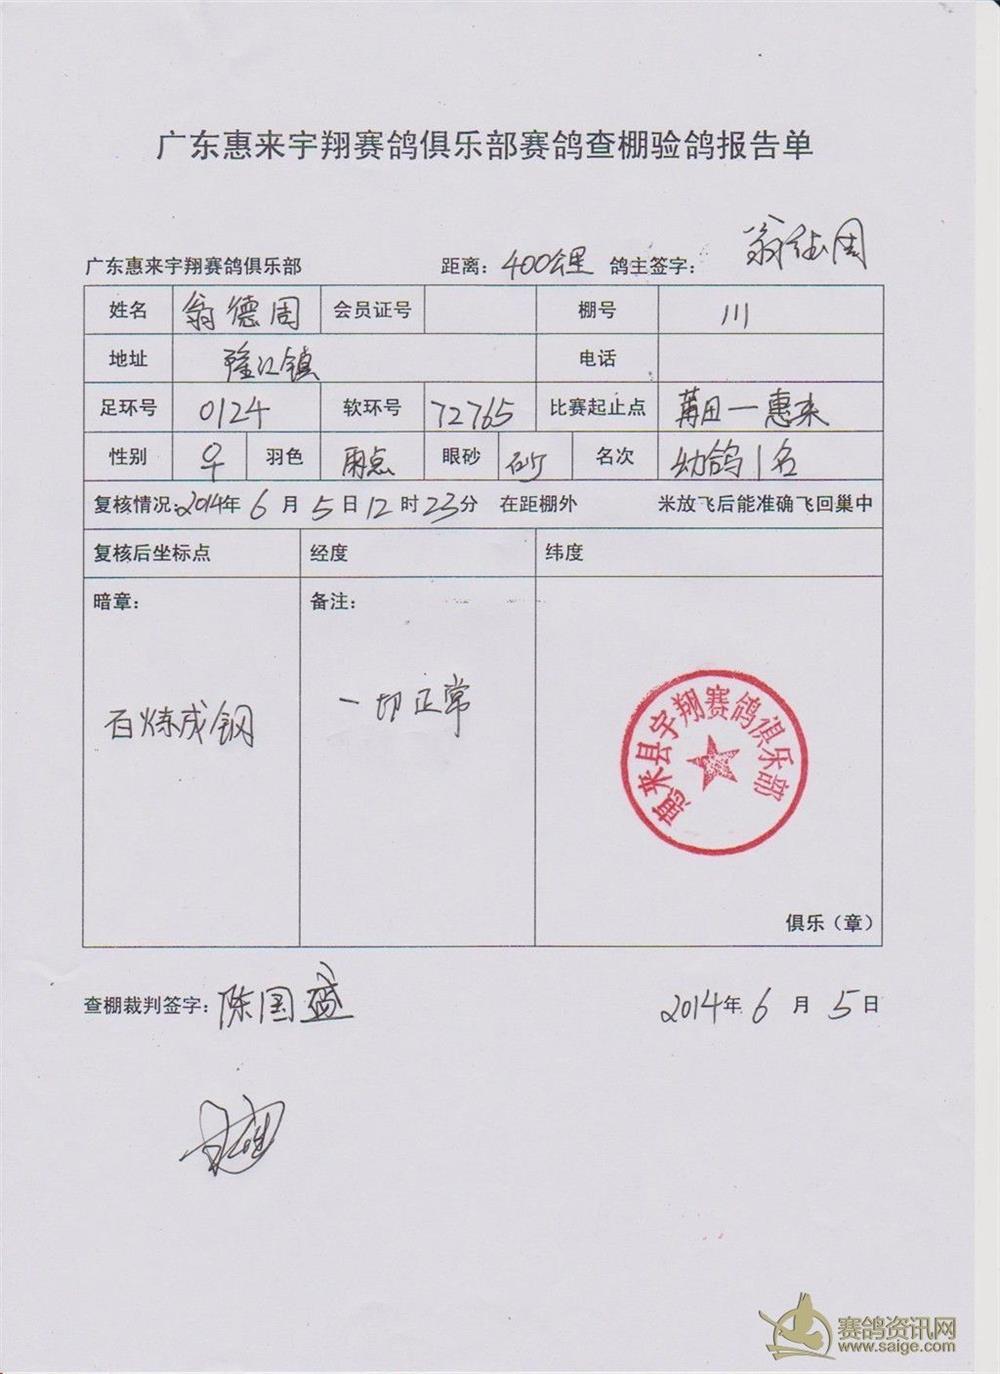 广东惠来宇翔赛鸽俱乐部赛鸽查棚验鸽报告单
广东惠来宇翔赛鸽俱乐部 距离：400公里 鸽主签字：翁德周
姓名 翁德周 会员证号 棚号 111
地址 隆江镇 电话
足环号 0124 软环号 72765 比赛起止点 莆田—惠来
性别 ♀ 羽色 雨点 眼砂 砂 名次 幼鸽1名
复核情况：2014年 6 月 5 日 12 时 23 分 在距棚外 米放飞后能准确飞回巢中
复核后坐标点 经度 纬度
暗章： 备注：
百炼成钢 一切正常
惠来县宇翔赛鸽俱乐部
俱乐（章）
查棚裁判签字：陈国盛 2014年 6 月 5 日
赛鸽资讯网
www.saige.com